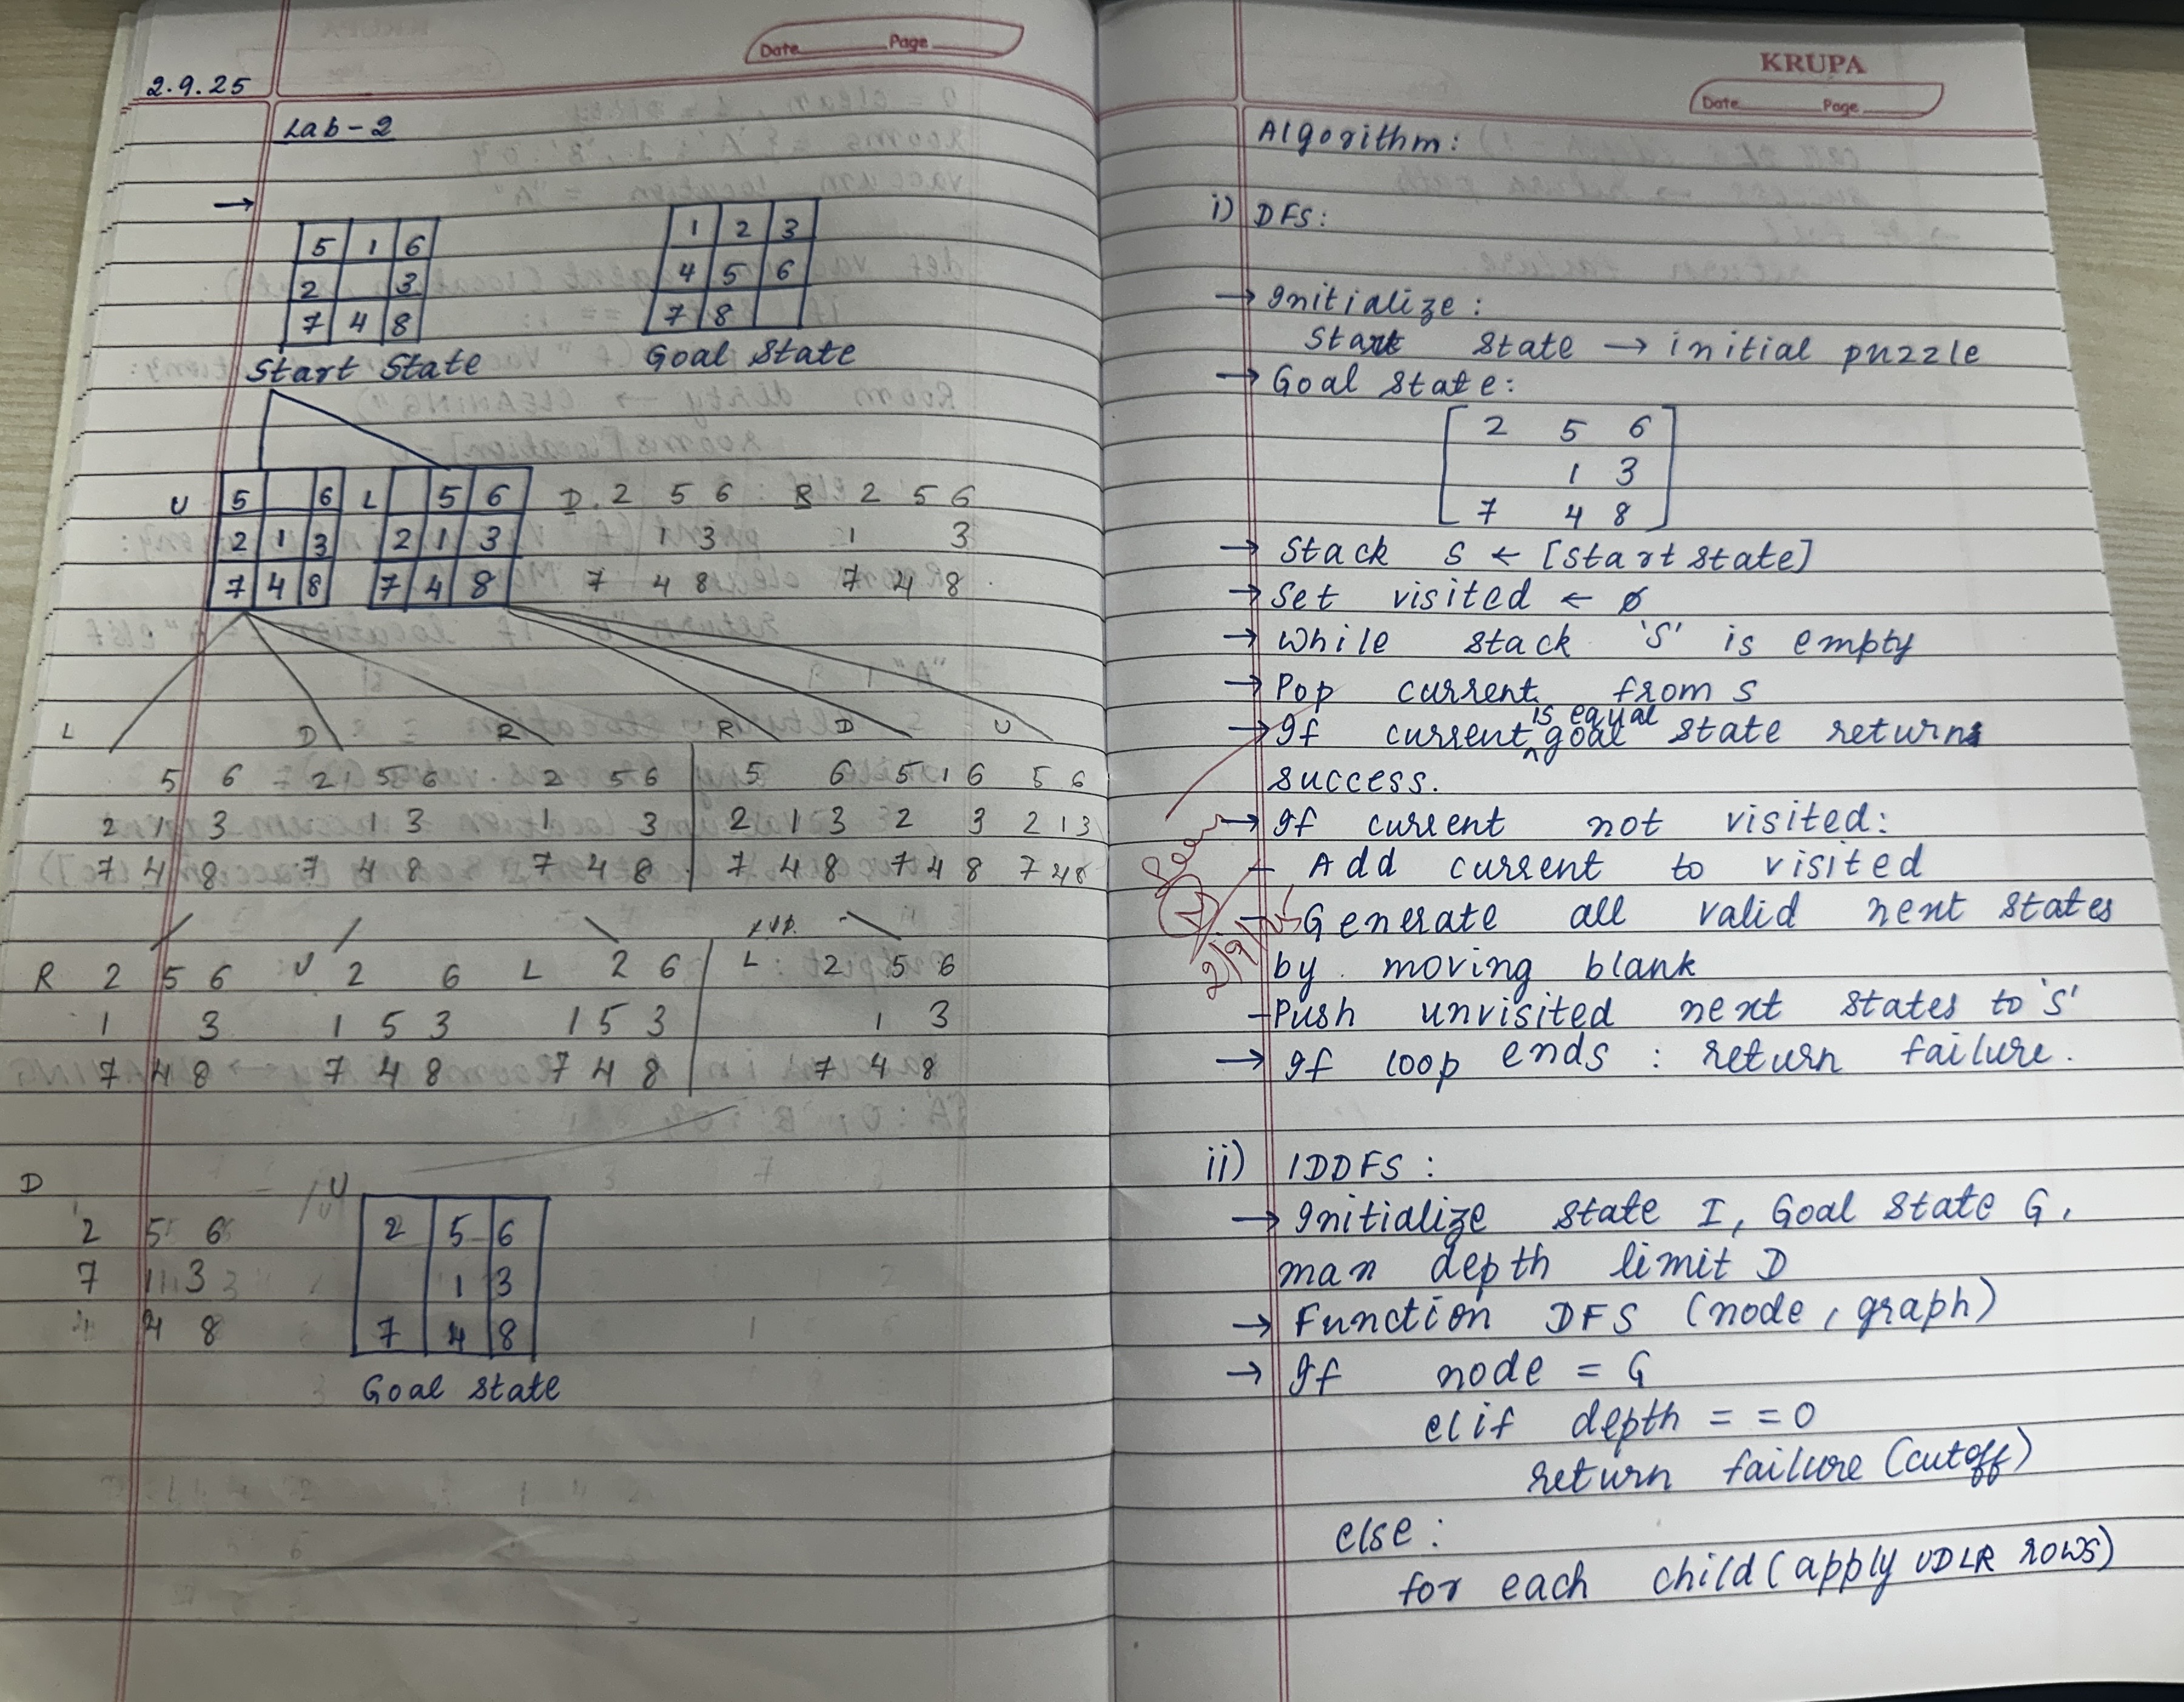 Date Page
2.9.25
Lab-2
→
5 1 6
2 3
7 4 8
Start State
1 2 3
4 5 6
7 8
Goal State
U
5 6
2 1 3
7 4 8
L
5 6
2 1 3
7 4 8
D.
2 5 6
1 3
7 4 8
R
2 5 6
1 3
7 4 8
L D R R D U
5 6 2 5 6 2 5 6 5 6 5 1 6 5 6
2 1 3 1 3 1 3 2 1 3 2 3 2 1 3
7 4 8 7 4 8 7 4 8 7 4 8 7 4 8 7 4 8
R 2 5 6 U 2 6 L 2 6 L 2 5 6
1 3 1 5 3 1 5 3 1 3
7 4 8 7 4 8 7 4 8 7 4 8
D
2 5 6
7 1 3
4 8
U
2 5 6
1 3
7 4 8
Goal State
KRUPA
Date Page
Algorithm:
i) DFS:
→ Initialize:
Start State → initial puzzle
→ Goal State:
2 5 6
1 3
7 4 8
→ Stack S ← [Start State]
→ Set visited ← ø
→ While stack 'S' is empty
→ Pop current from S
→ If current is equal goal state return
success.
→ If current not visited:
- Add current to visited
- Generate all valid next states
by moving blank
- Push unvisited next states to 'S'
→ If loop ends : return failure.
ii) IDDFS:
→ Initialize State I, Goal State G,
max depth limit D
→ Function DFS (node, graph)
→ If node = G
elif depth == 0
return failure (cutoff)
else:
for each child (apply UDLR rows)